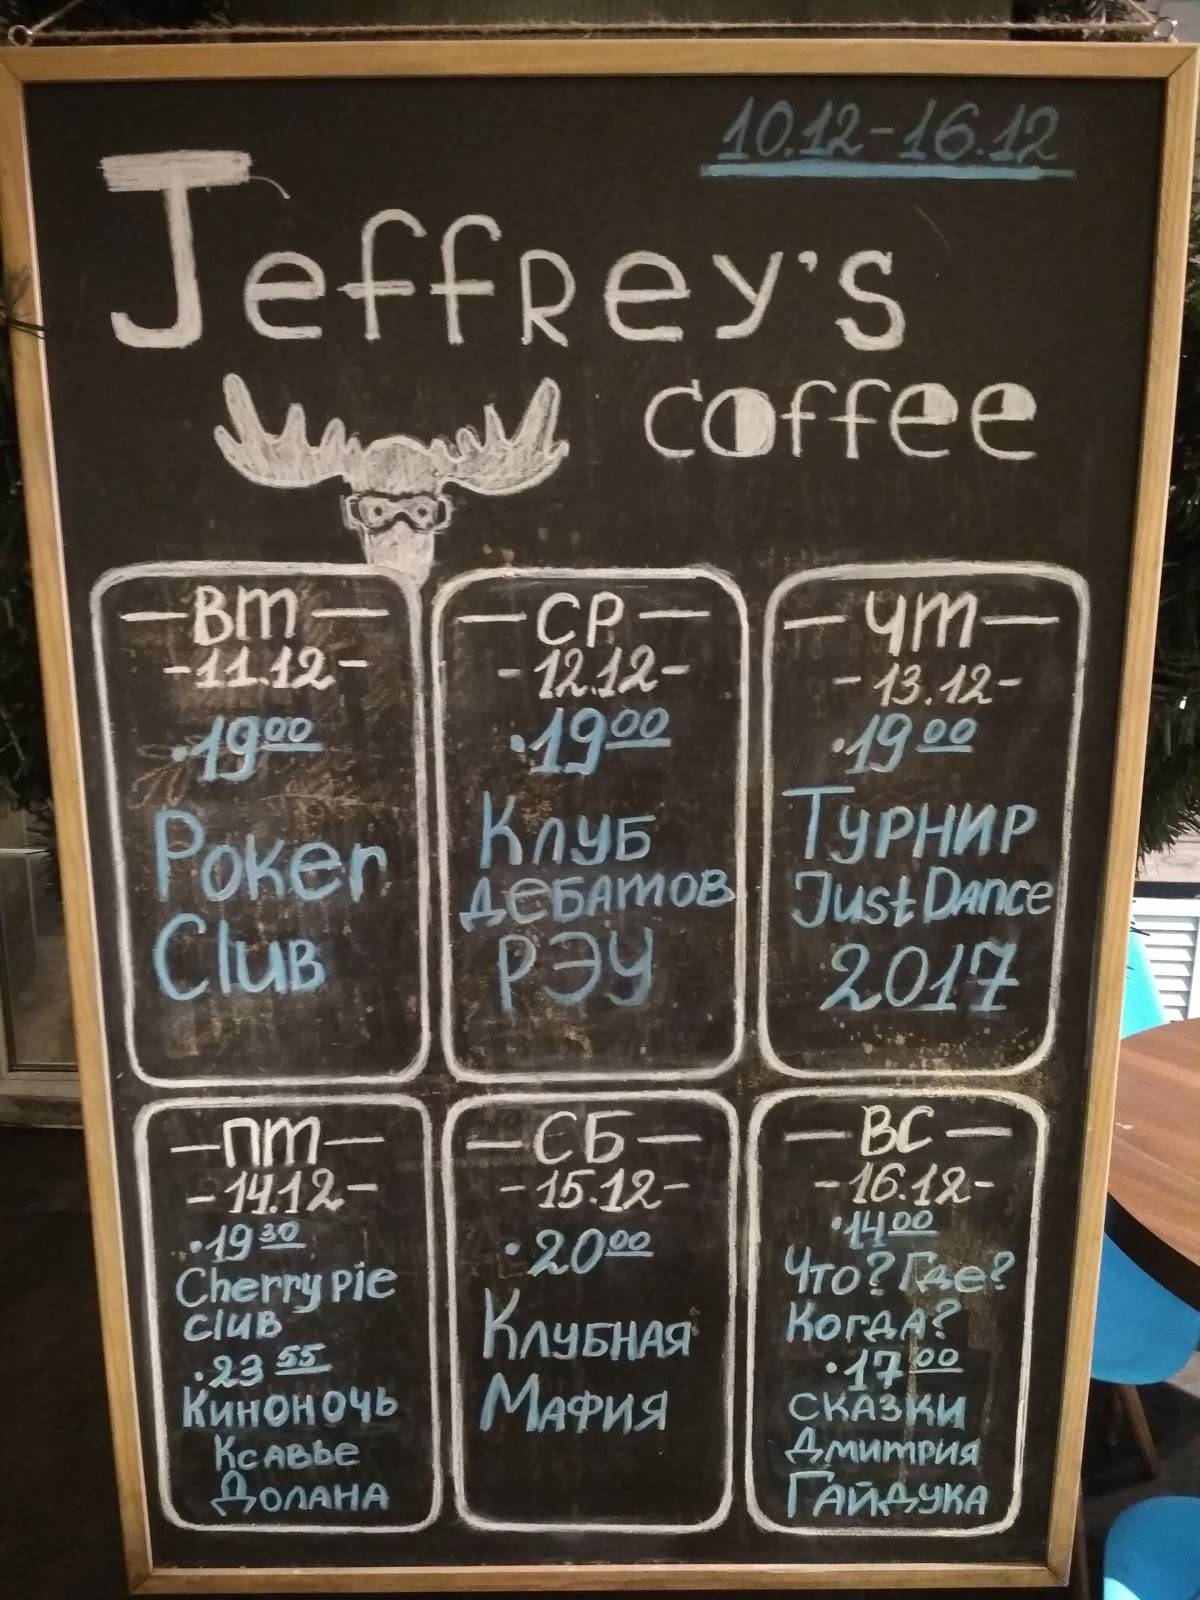 10.12-16.12
Jeffrey's
coffee
ВТ
-11.12-
·19 00
Poker
Club
СР
-12.12-
·19 00
Клуб
дебатов
РЭУ
ЧТ
-13.12-
·19 00
Турнир
Just Dance
2017
ПТ
-14.12-
·19 30
Cherry pie
club
·23 55
Киноночь
Ксавье
Долана
СБ
-15.12-
·20 00
Клубная
Мафия
ВС
-16.12-
·14 00
Что? Где?
Когда?
·17 00
сказки
Дмитрия
Гайдука